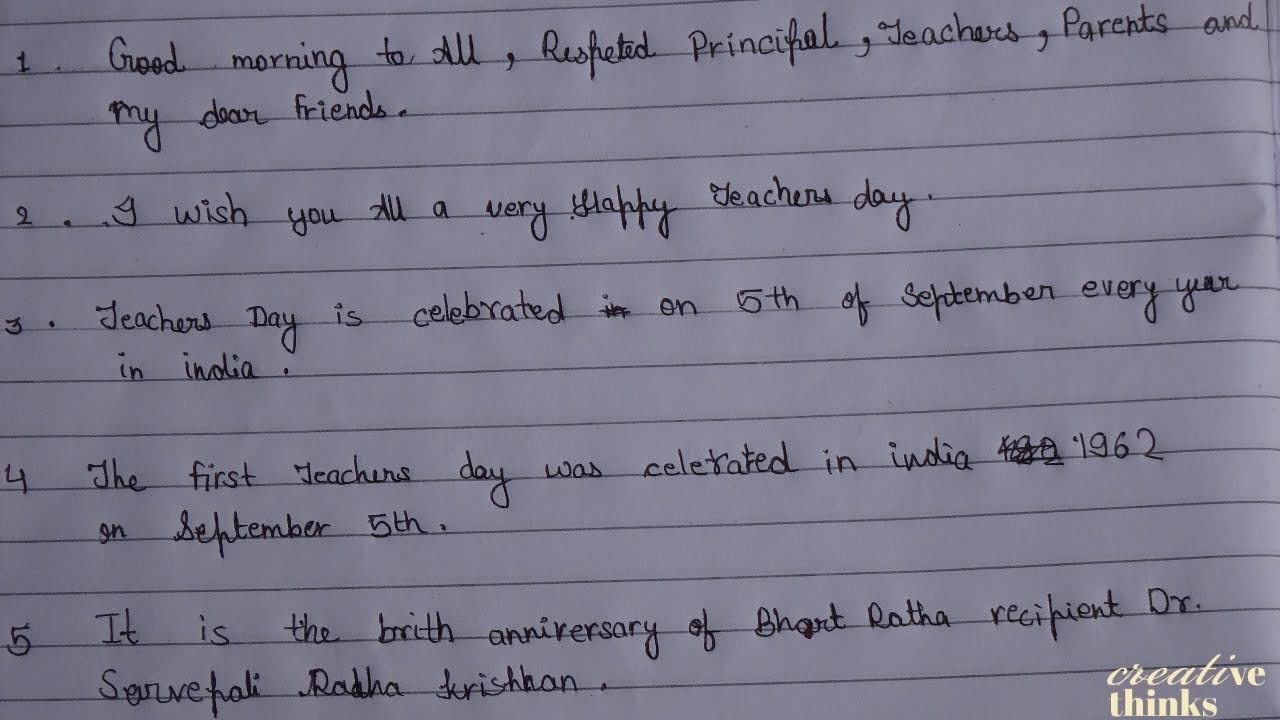 1 . Good morning to All , Respeted Principal , Teachers , Parents and
my dear friends .
2 . . I wish you All a very Happy Teachers day .
3 . Teachers Day is celebrated in on 5th of September every year
in india .
4 The first Teachers day was celetrated in india 1962
on September 5th .
5 It is the brith anniversary of Bhart Ratha recipient Dr.
Sarvepali Radha krishhan .
creative
thinks